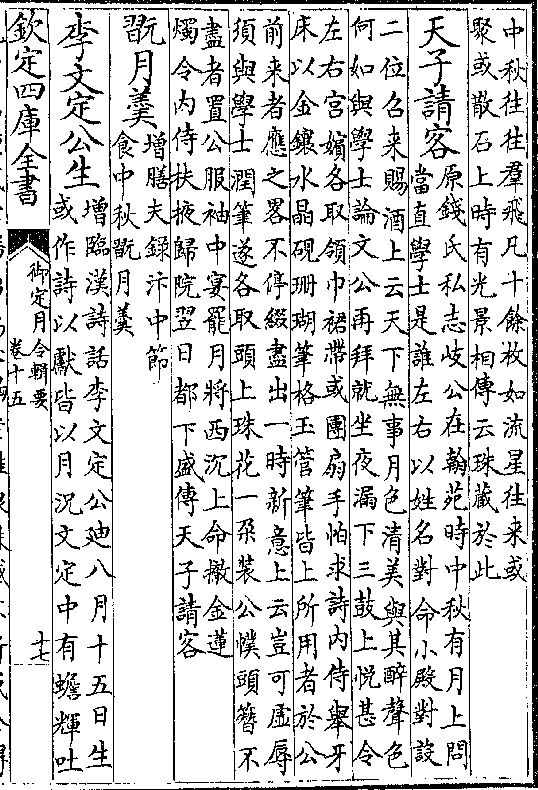 中秋往往羣飛凡十餘枚如流星往来或
聚或散石上時有光景相傳云珠藏於此
天子請客
原錢氏私志岐公在翰苑時中秋有月上問
當直學士是誰左右以姓名對命小殿對設
二位召来賜酒上云天下無事月色清美與其醉聲色
何如與學士論文公再拜就坐夜漏下三鼓上悦甚令
左右宮嬪各取領巾裙帶或團扇手帕求詩内侍舉牙
床以金鑲水晶硯珊瑚筆格玉管筆皆上所用者於公
前来者應之畧不停綴盡出一時新意上云豈可虚辱
須與學士潤筆遂各取頭上珠花一朶裝公幞頭簪不
盡者置公服袖中宴罷月將西沉上命撤金蓮
燭令内侍扶掖歸院翌日都下盛傳天子請客
翫月羹
增膳夫録汴中節
食中秋翫月羹
李文定公生
增臨漢詩話李文定公廸八月十五日生
或作詩以獻皆以月况文定中有蟾輝吐
欽定四庫全書
御定月令輯要
卷十五
十七